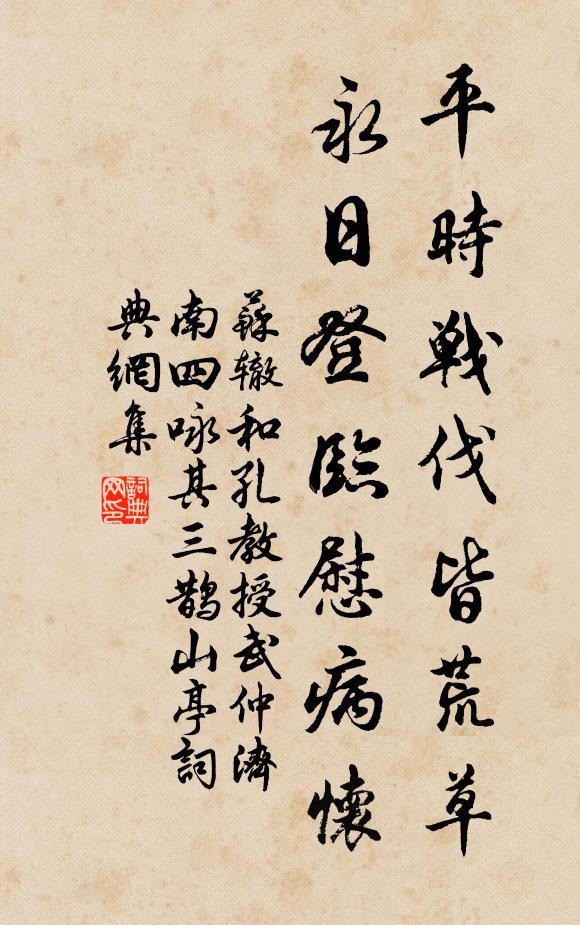 平時戰伐皆荒草
永日登臨慰病懷
蘇轍和孔教授武仲濟
南四咏其三鵲山亭詞
典網集
詞典
网印